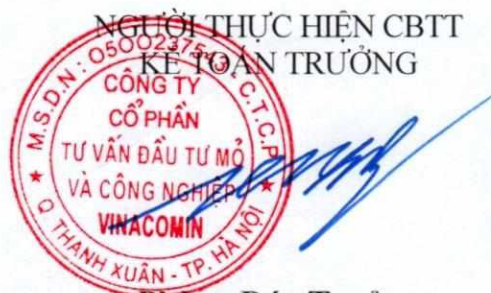 NGƯỜI THỰC HIỆN CBTT
KẾ TOÁN TRƯỞNG
M.S.D.N: 0500237543 - C.T.C.P
CÔNG TY
CỔ PHẦN
TƯ VẤN ĐẦU TƯ MỎ
VÀ CÔNG NGHIỆP
VINACOMIN
Q THANH XUÂN - TP. HÀ NỘI